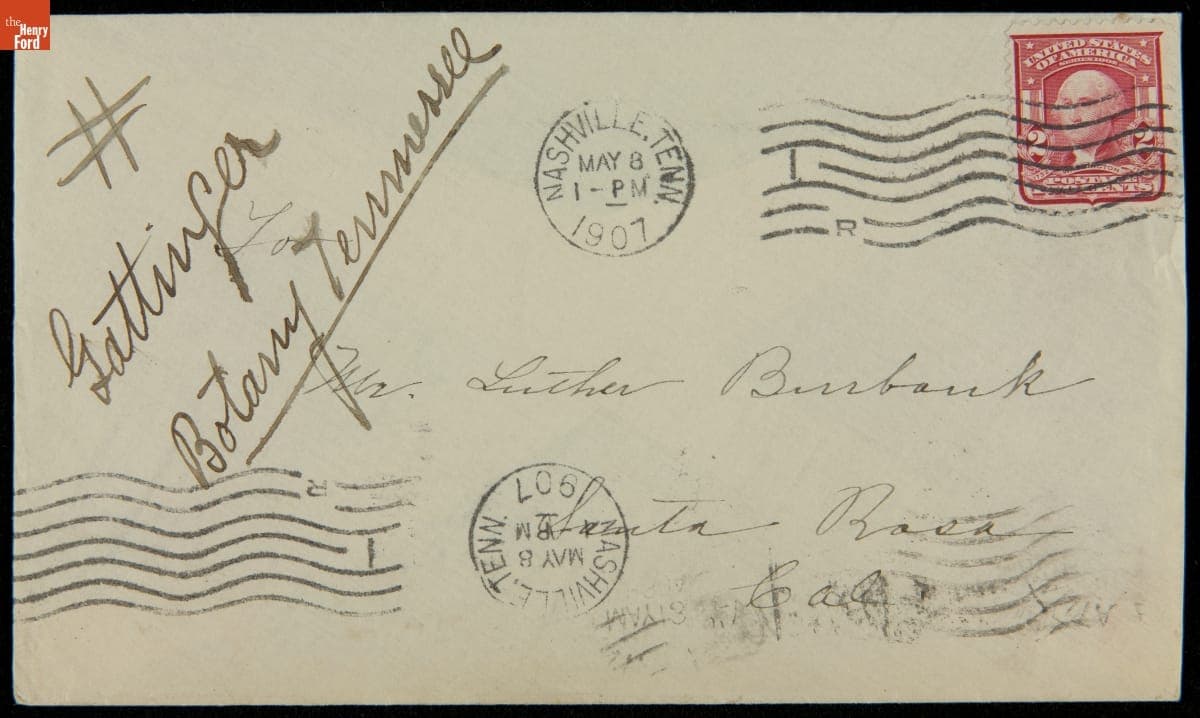 the
Henry
Ford
#
Gattinger
Botany Tennessee
NASHVILLE, TENN.
MAY 8
1 - PM
1907
R
UNITED STATES
OF AMERICA
2 2
POSTAGE
CENTS
Mr. Luther Burbank
Santa Rosa
Cal
NASHVILLE, TENN.
MAY 8
PM
1907
R